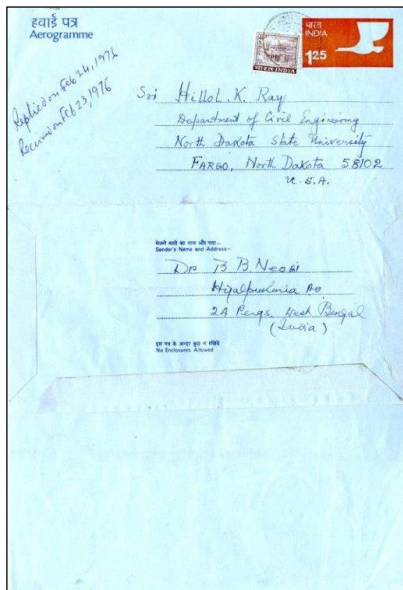 हवाई पत्र
Aerogramme
भारत
INDIA
1.25
भारत INDIA
Replied on Feb 24, 1976
Received on Feb 23, 1976
Sri Hillol. K. Ray
Department of Civil Engineering
North Dakota State University
FARGO, North Dakota 58102
U.S.A.
भेजने वाले का नाम और पता :-
Sender's Name and Address :-
Dr B B Neogi
Hijalpukuria Po
24 Pergs West Bengal
(India)
इस पत्र के अन्दर कुछ न रखिये
No Enclosures Allowed